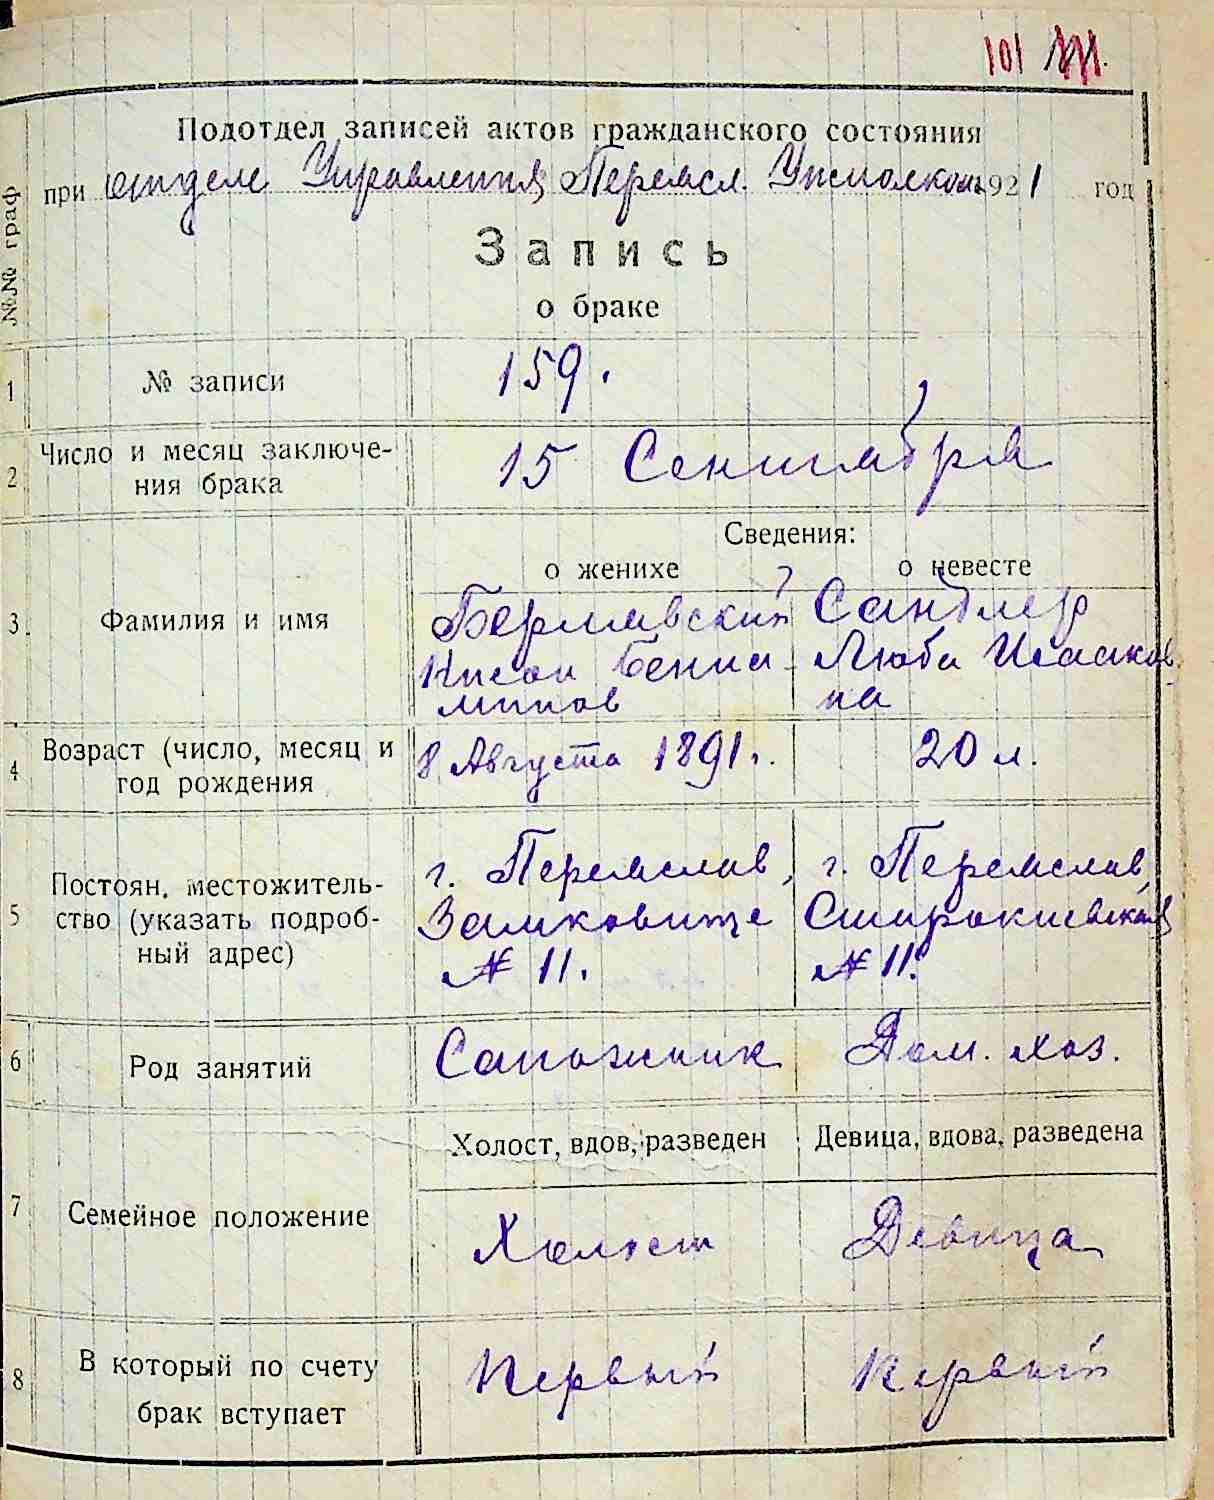 101
Подотдел записей актов гражданского состояния
при отделе Управления Переясл. Исполкома 1921 год
№№ граф
Запись
о браке
1 № записи 159.
2 Число и месяц заключе-
ния брака 15 Сентября
Сведения:
о женихе о невесте
3 Фамилия и имя
Берлявский Сандлер
Нисон Бениа- Люба Исааков
минов на
4 Возраст (число, месяц и
год рождения 8 Августа 1891 г. 20 л.
5 Постоян. местожитель-
ство (указать подроб-
ный адрес)
г. Переяслав, г. Переяслав,
Замковище Старокиевская
№ 11. № 11.
6 Род занятий Сапожник Дом. хоз.
Холост, вдов, разведен Девица, вдова, разведена
7 Семейное положение Холост Девица
8 В который по счету
брак вступает Первый Первый